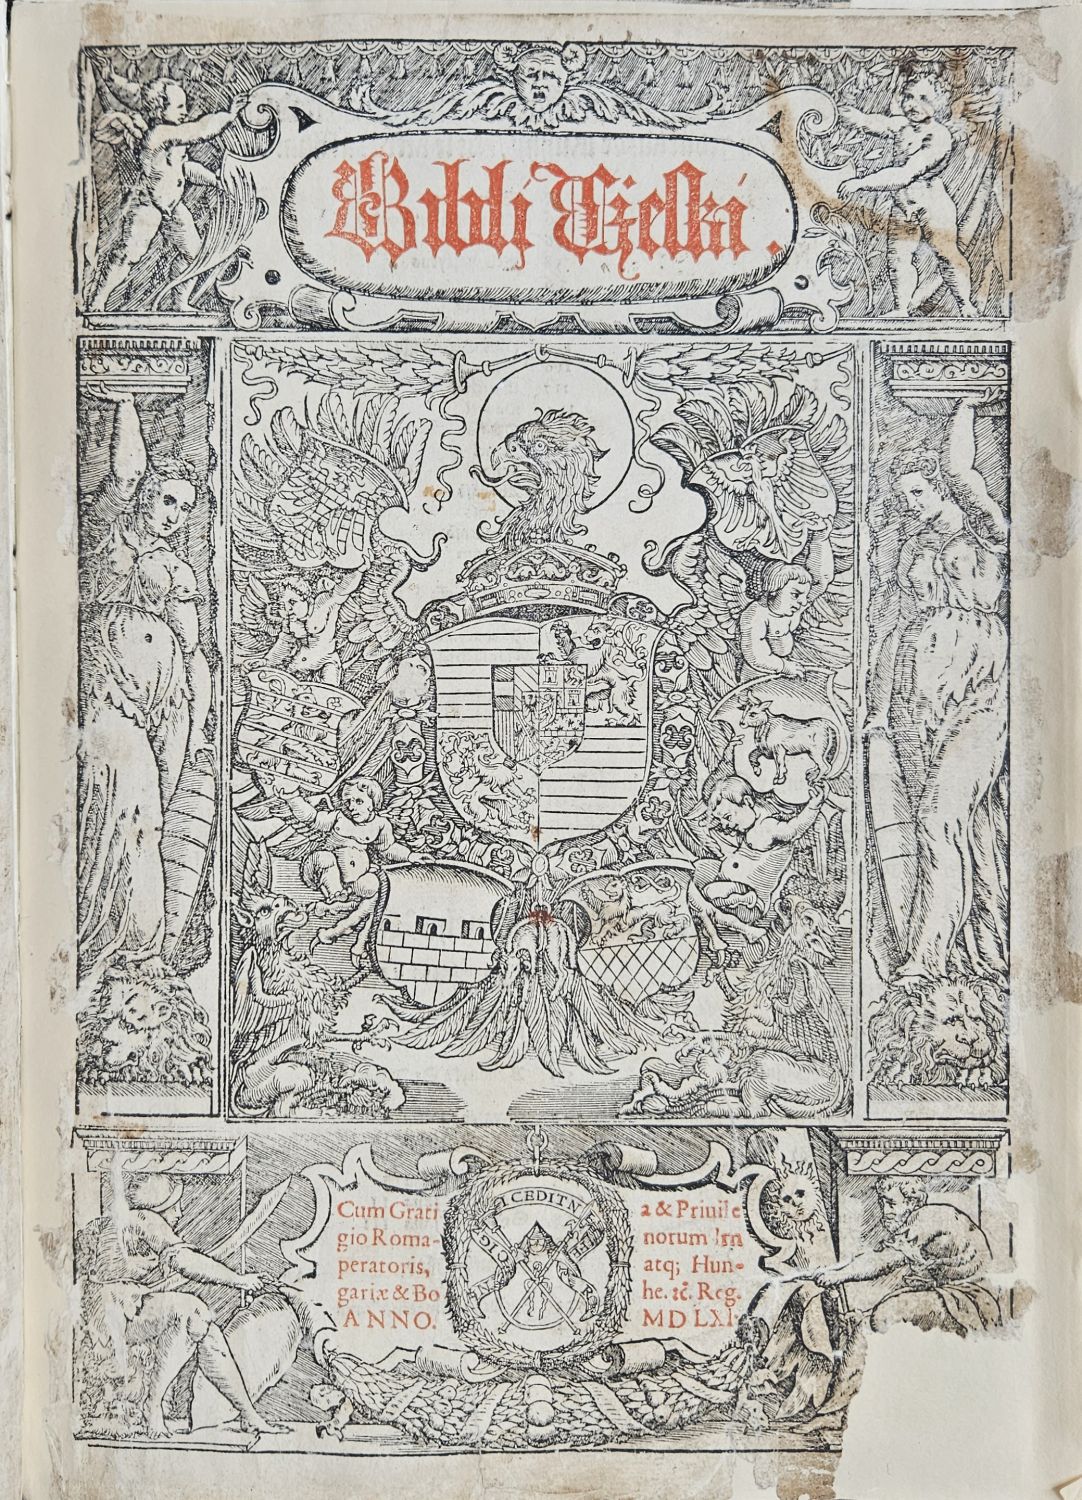 Biblj Cžeſká.
Cum Grati a & Priuile
gio Roma- norum Im
peratoris, atq; Hun-
gariæ & Bo he. ꝛč. Reg.
ANNO. MDLXI.
CEDIT